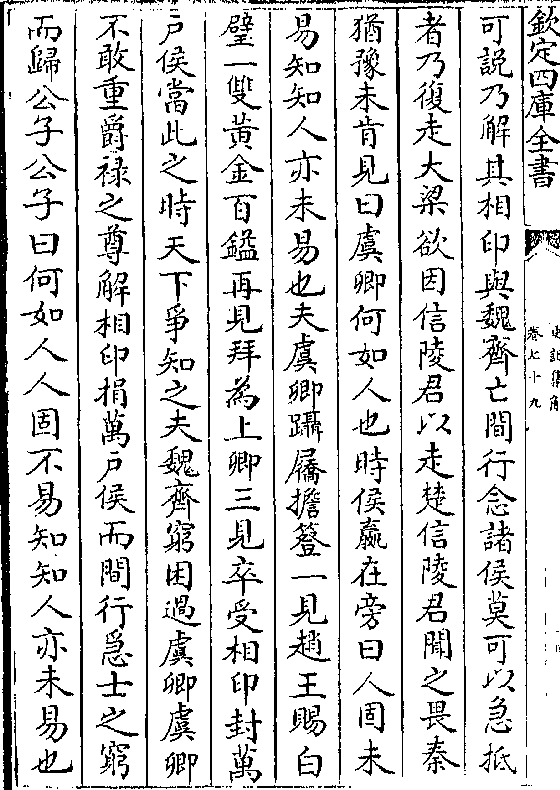 欽定四庫全書
卷七十九
可説乃解其相印與魏齊亡間行念諸侯莫可以急抵
者乃復走大梁欲因信陵君以走楚信陵君聞之畏秦
猶豫未肯見曰虞卿何如人也時侯嬴在旁曰人固未
易知知人亦未易也夫虞卿躡屩擔簦一見趙王賜白
璧一雙黃金百鎰再見拜為上卿三見卒受相印封萬
戶侯當此之時天下爭知之夫魏齊窮困過虞卿虞卿
不敢重爵祿之尊解相印捐萬戶侯而間行急士之窮
而歸公子公子曰何如人人固不易知知人亦未易也